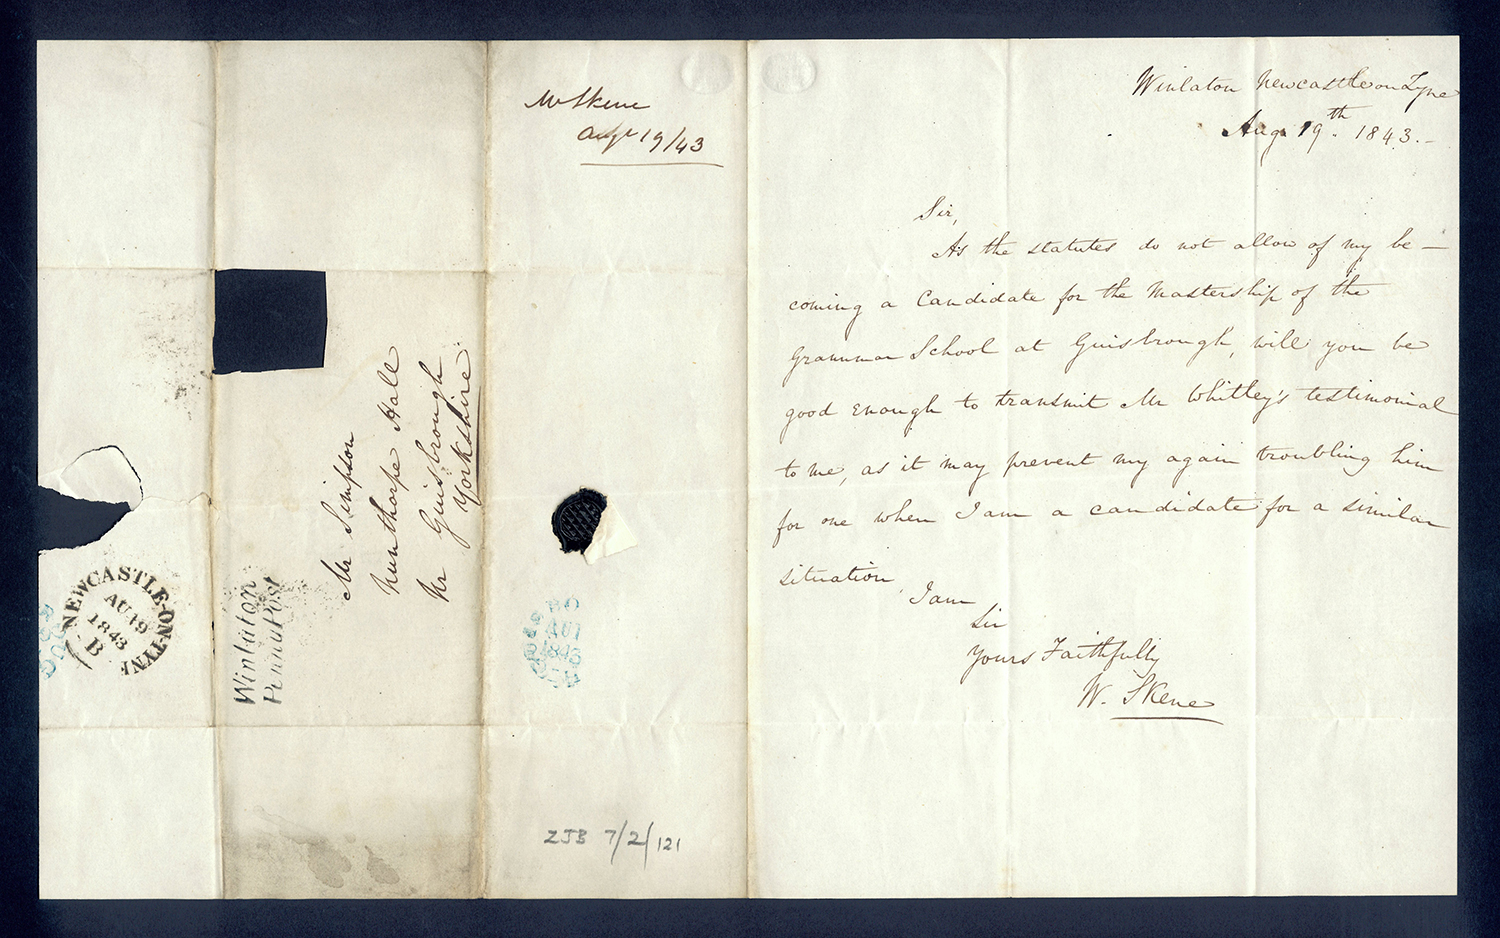 Mr Skene
Augt 19/43
Mr Simpson
Nunthorpe Hall
Nr Guisbrough
Yorkshire
NEWCASTLE-ON-TYNE
AU 19
1843
B
Winlaton
Penny Post
1843
ZJB 7/2/121
Winlaton Newcastle on Tyne
Aug. 19th. 1843.-
Sir,
As the statutes do not allow of my be-
coming a Candidate for the Mastership of the
Grammar School at Guisbrough, will you be
good enough to transmit Mr Whitley's testimonial
to me, as it may prevent my again troubling him
for one when I am a candidate for a similar
situation,
I am
Sir
Yours Faithfully
W. Skene